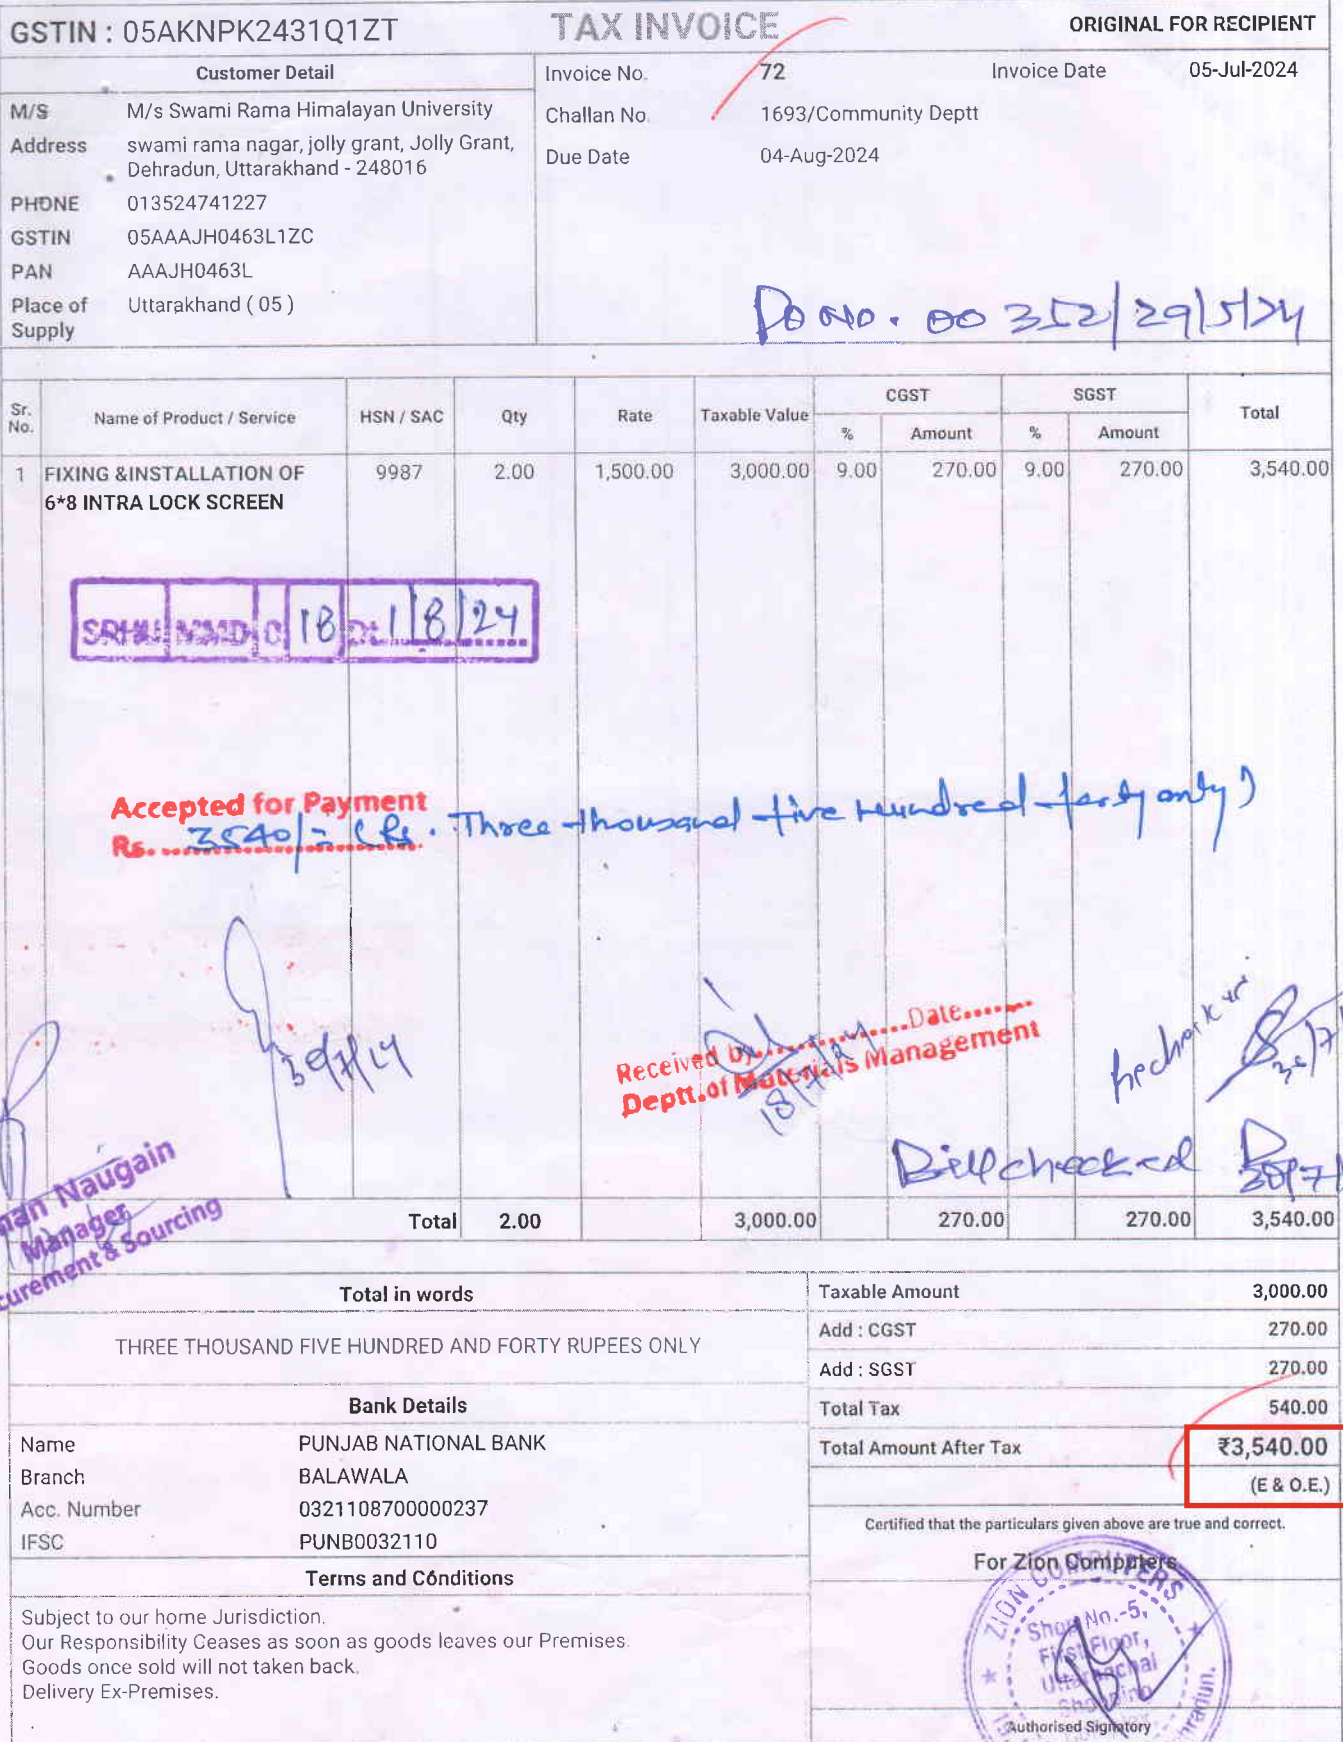 GSTIN : 05AKNPK2431Q1ZT TAX INVOICE ORIGINAL FOR RECIPIENT
Customer Detail
M/S M/s Swami Rama Himalayan University
Address swami rama nagar, jolly grant, Jolly Grant,
Dehradun, Uttarakhand - 248016
PHONE 013524741227
GSTIN 05AAAJH0463L1ZC
PAN AAAJH0463L
Place of Supply Uttarakhand ( 05 )
Invoice No. 72 Invoice Date 05-Jul-2024
Challan No. 1693/Community Deptt
Due Date 04-Aug-2024
PO NO. 00352/29/5/24
Sr. No. Name of Product / Service HSN / SAC Qty Rate Taxable Value CGST SGST Total
% Amount % Amount
1 FIXING &INSTALLATION OF 9987 2.00 1,500.00 3,000.00 9.00 270.00 9.00 270.00 3,540.00
6*8 INTRA LOCK SCREEN
SRHU MMD 18 Dt. 1/8/24
Accepted for Payment
Rs. 3540/= (Rs. Three thousand five Hundred forty only)
30/7/24
Received by Date
Deptt. of Materials Management
18/7/24
Bill checked
Naugain
Manager
& Sourcing
Total 2.00 3,000.00 270.00 270.00 3,540.00
Total in words
THREE THOUSAND FIVE HUNDRED AND FORTY RUPEES ONLY
Bank Details
Name PUNJAB NATIONAL BANK
Branch BALAWALA
Acc. Number 0321108700000237
IFSC PUNB0032110
Terms and Conditions
Subject to our home Jurisdiction.
Our Responsibility Ceases as soon as goods leaves our Premises.
Goods once sold will not taken back.
Delivery Ex-Premises.
Taxable Amount 3,000.00
Add : CGST 270.00
Add : SGST 270.00
Total Tax 540.00
Total Amount After Tax ₹3,540.00
(E & O.E.)
Certified that the particulars given above are true and correct.
For Zion Computers
ZION COMPUTERS
Shop No.-5,
First Floor,
Uttaranchal
Shopping
Authorised Signatory